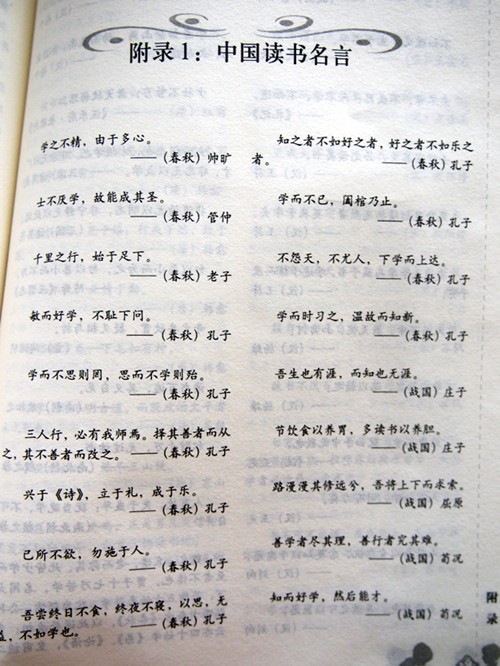 附录1：中国读书名言
学之不精，由于多心。
——（春秋）帅旷
士不厌学，故能成其圣。
——（春秋）管仲
千里之行，始于足下。
——（春秋）老子
敏而好学，不耻下问。
——（春秋）孔子
学而不思则罔，思而不学则殆。
——（春秋）孔子
三人行，必有我师焉。择其善者而从
之，其不善者而改之。——（春秋）孔子
兴于《诗》，立于礼，成于乐。
——（春秋）孔子
己所不欲，勿施于人。
——（春秋）孔子
吾尝终日不食，终夜不寝，以思，无
益，不如学也。——（春秋）孔子
知之者不如好之者，好之者不如乐之
者。——（春秋）孔子
学而不已，阖棺乃止。
——（春秋）孔子
不怨天，不尤人，下学而上达。
——（春秋）孔子
学而时习之，温故而知新。
——（春秋）孔子
吾生也有涯，而知也无涯。
——（战国）庄子
节饮食以养胃，多读书以养胆。
——（战国）庄子
路漫漫其修远兮，吾将上下而求索。
——（战国）屈原
善学者尽其理，善行者究其难。
——（战国）荀况
知而好学，然后能才。
——（战国）荀况
附
录